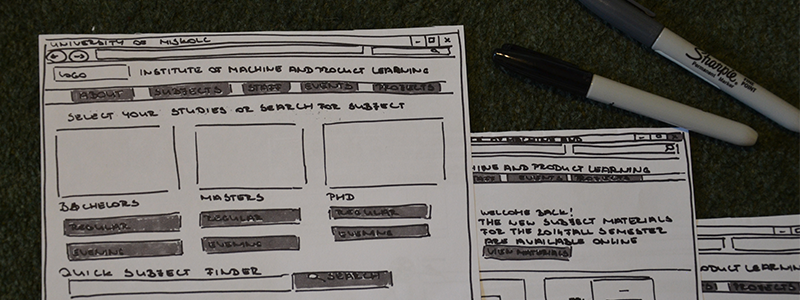 UNIVERSITY OF MISKOLC
LOGO
INSTITUTE OF MACHINE AND PRODUCT LEARNING
ABOUT SUBJECTS STAFF EVENTS PROJECTS
SELECT YOUR STUDIES OR SEARCH FOR SUBJECT
BACHELORS MASTERS PHD
REGULAR REGULAR REGULAR
EVENING EVENING EVENING
QUICK SUBJECT FINDER
SEARCH
AND PRODUCT LEARNING
EVENTS PROJECTS
WELCOME BACK!
THE NEW SUBJECT MATERIALS
FOR THE 2014/FALL SEMESTER
ARE AVAILABLE ONLINE
VIEW MATERIALS
LEARNING
EVENTS PROJECTS
Sharpie